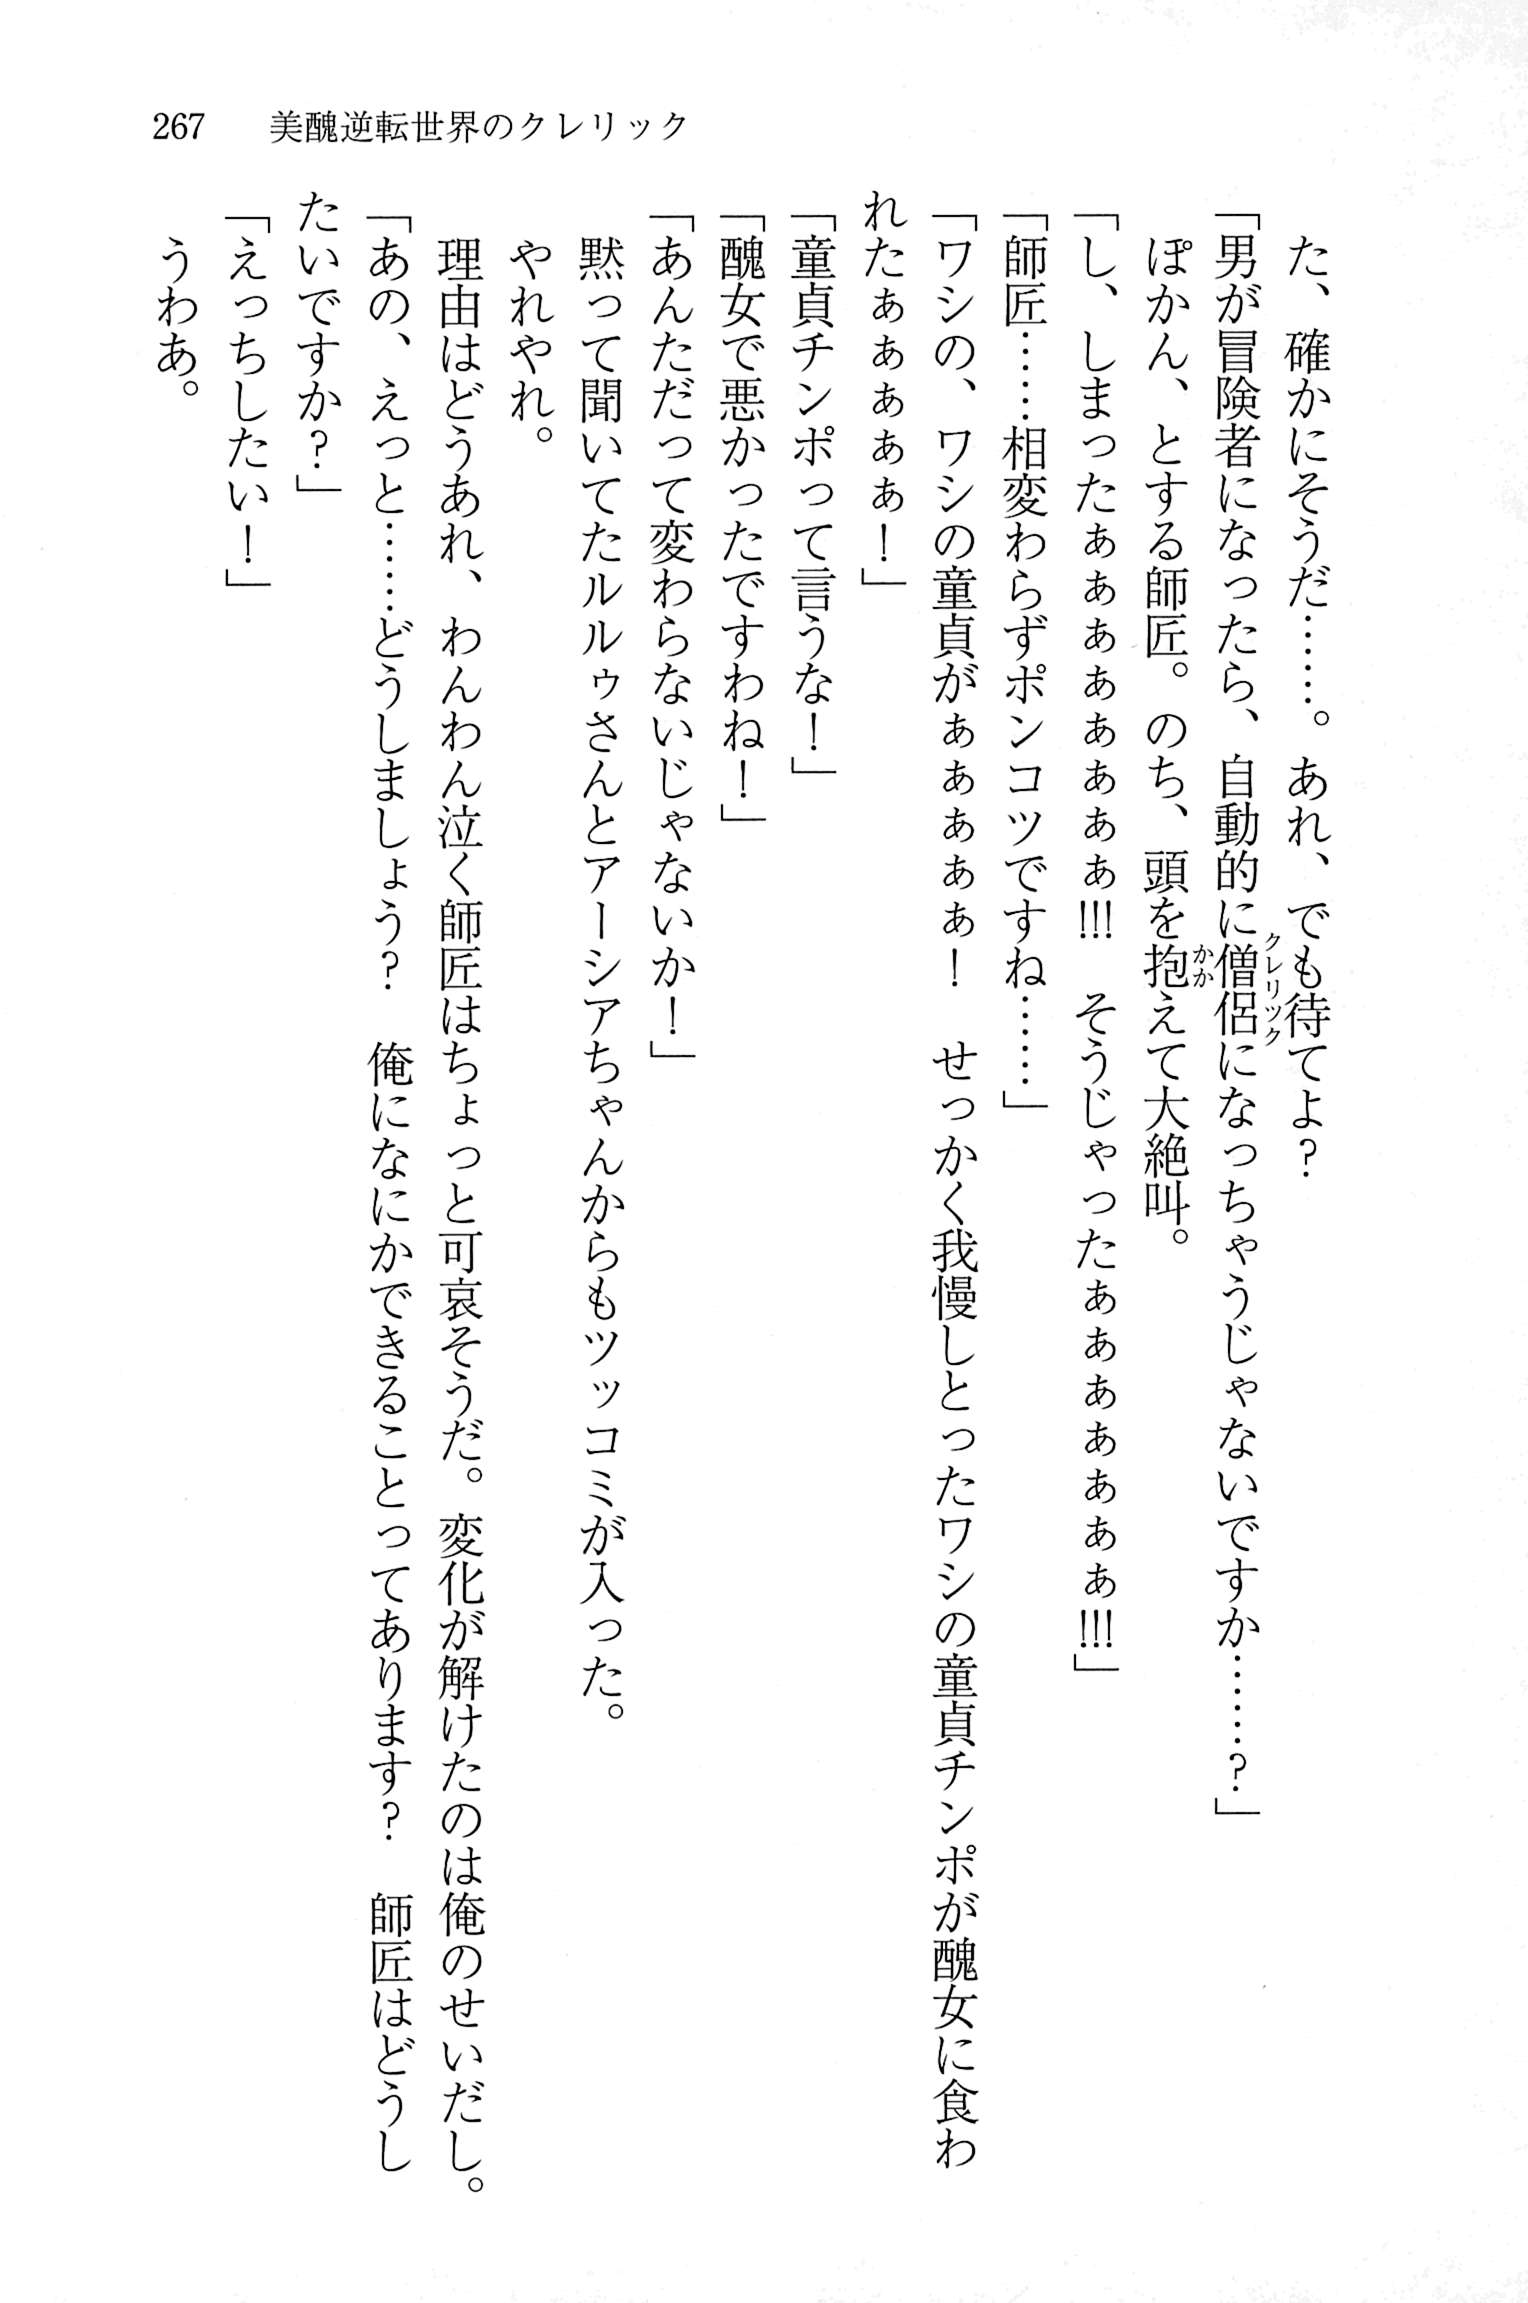 267　美醜逆転世界のクレリック
た、確かにそうだ……。あれ、でも待てよ？
「男が冒険者になったら、自動的に僧侶クレリックになっちゃうじゃないですか……？」
ぽかん、とする師匠。のち、頭を抱かかえて大絶叫。
「し、しまったぁぁぁぁぁぁぁぁ!!!　そうじゃったぁぁぁぁぁぁぁ!!!」
「師匠……相変わらずポンコツですね……」
「ワシの、ワシの童貞がぁぁぁぁぁ！　せっかく我慢しとったワシの童貞チンポが醜女に食わ
れたぁぁぁぁぁ！」
「童貞チンポって言うな！」
「醜女で悪かったですわね！」
「あんただって変わらないじゃないか！」
黙って聞いてたルルゥさんとアーシアちゃんからもツッコミが入った。
やれやれ。
理由はどうあれ、わんわん泣く師匠はちょっと可哀そうだ。変化が解けたのは俺のせいだし。
「あの、えっと……どうしましょう？　俺になにかできることってあります？　師匠はどうし
たいですか？」
「えっちしたい！」
うわあ。